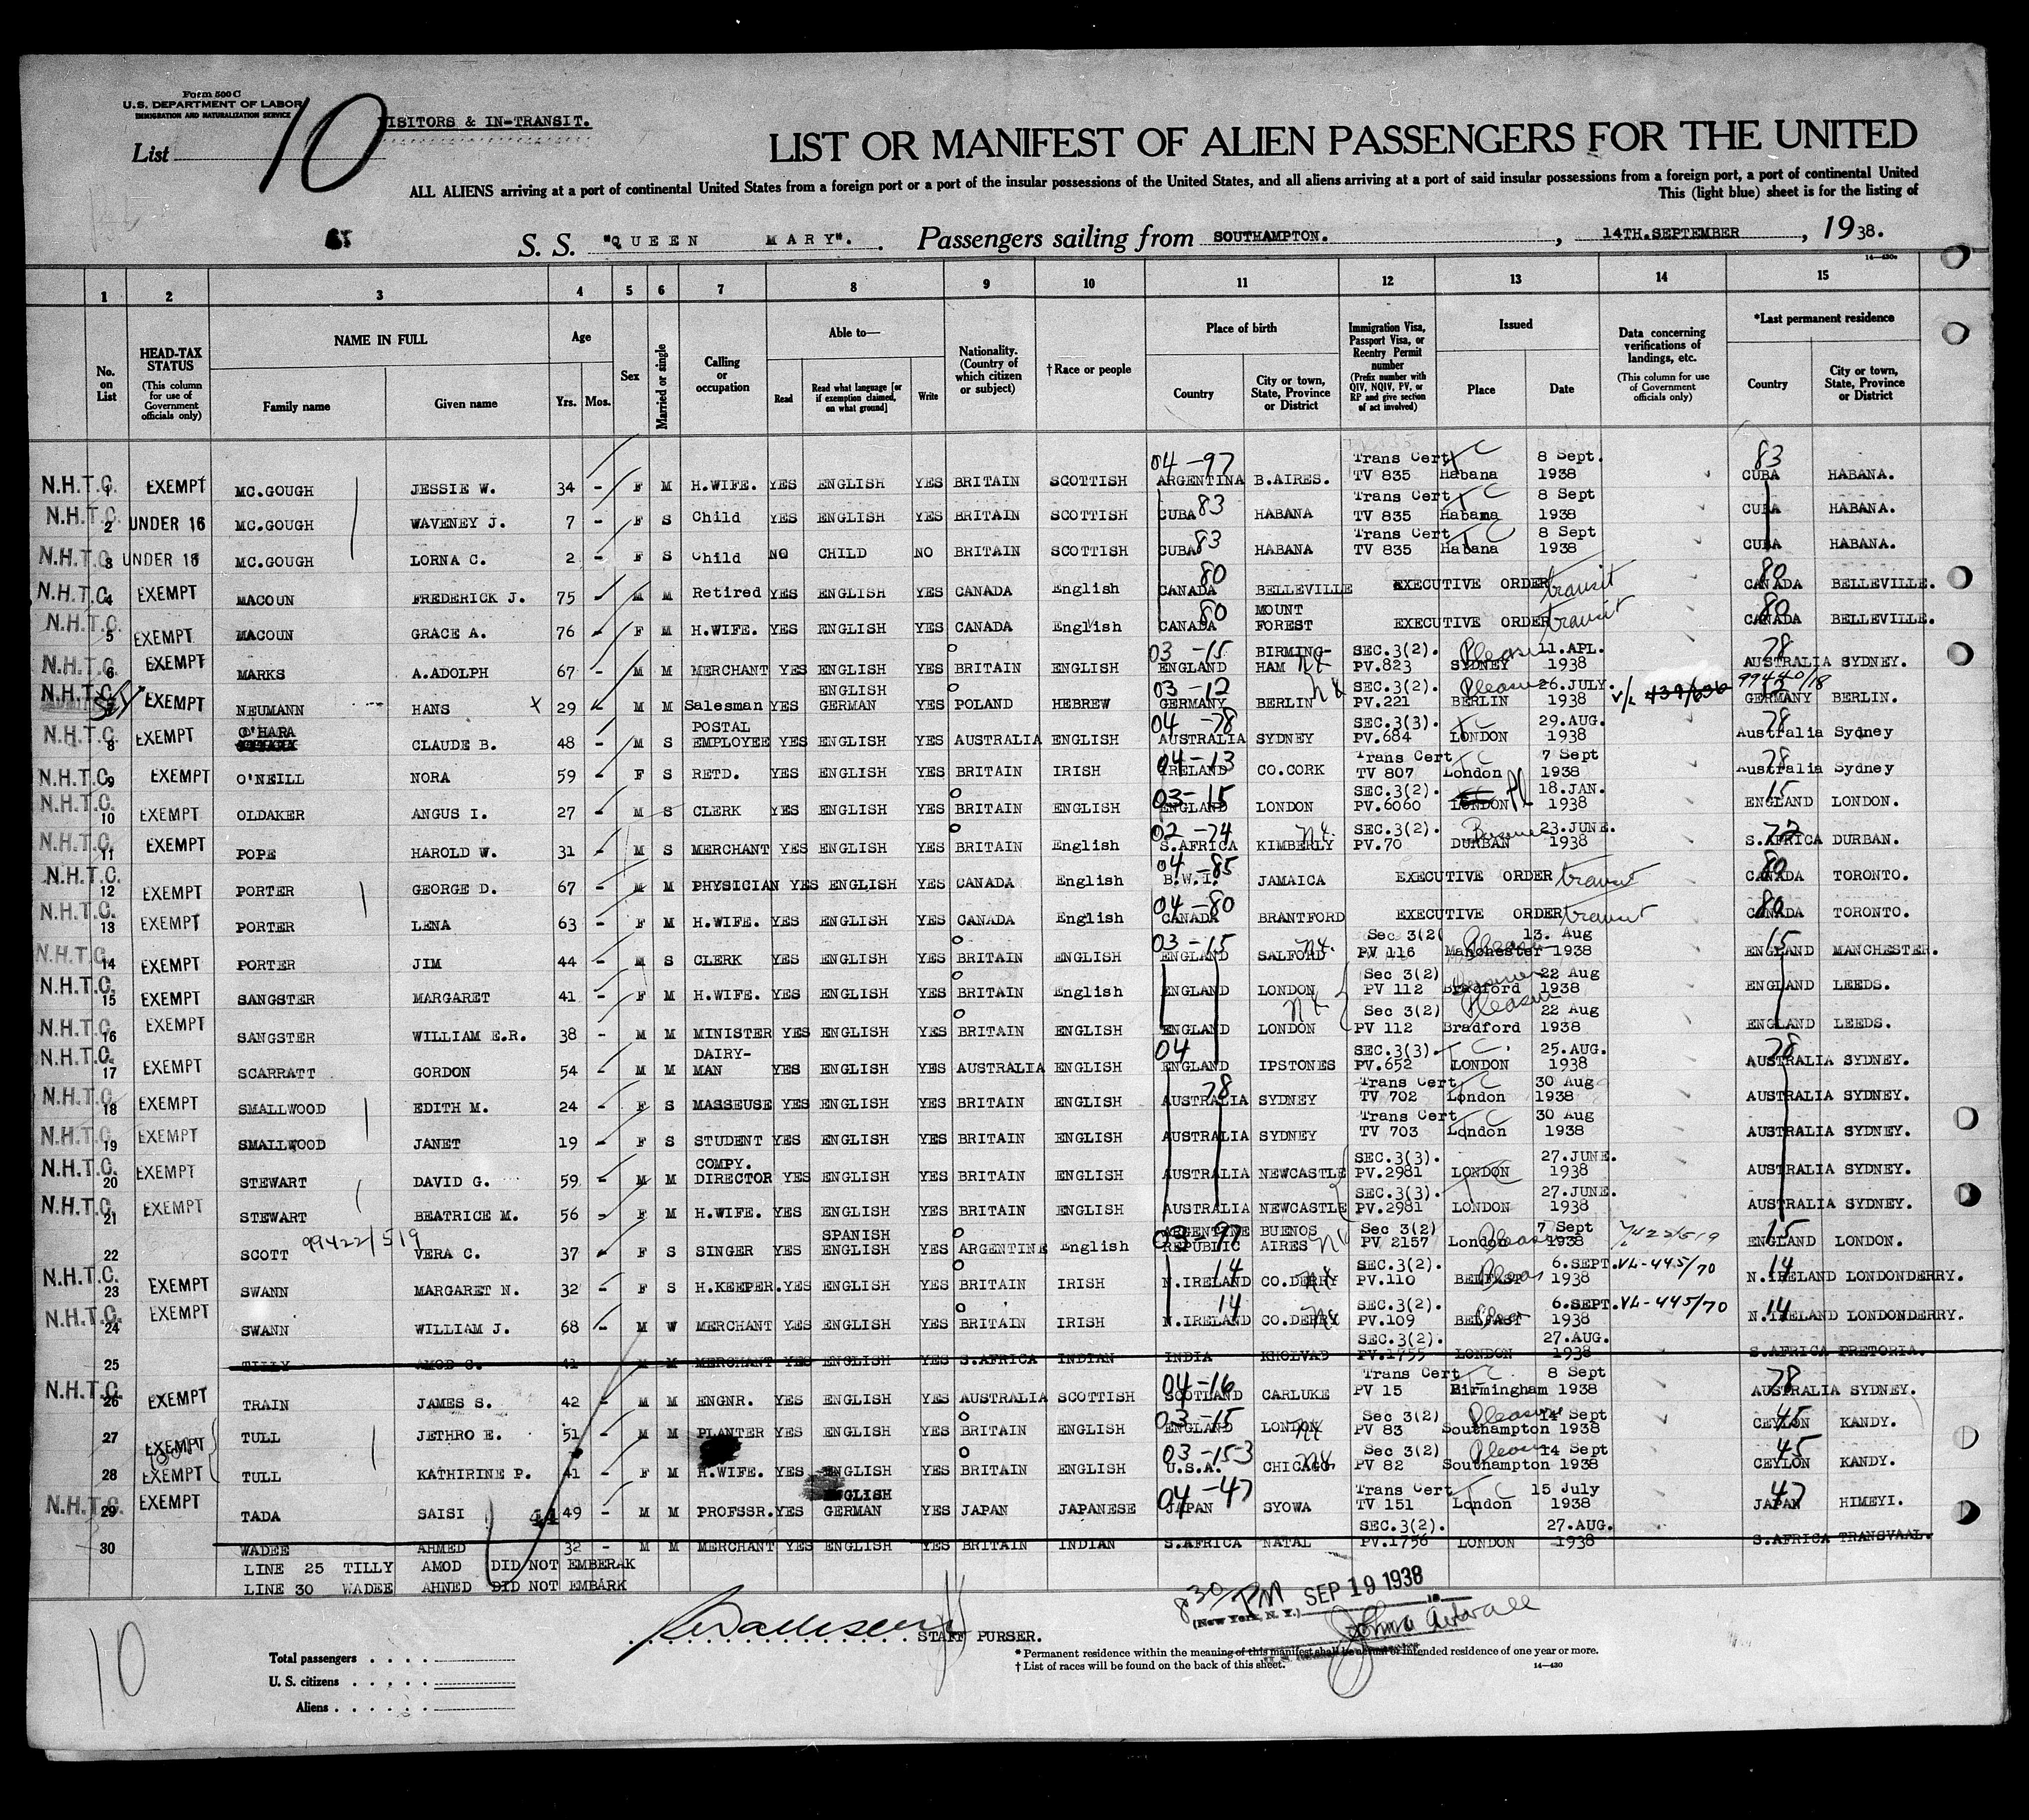 Form 500 C
U.S. DEPARTMENT OF LABOR
IMMIGRATION AND NATURALIZATION SERVICE
VISITORS & IN-TRANSIT.
List 10
LIST OR MANIFEST OF ALIEN PASSENGERS FOR THE UNITED
ALL ALIENS arriving at a port of continental United States from a foreign port or a port of the insular possessions of the United States, and all aliens arriving at a port of said insular possessions from a foreign port, a port of continental United
This (light blue) sheet is for the listing of
S. S. "QUEEN MARY". Passengers sailing from SOUTHAMPTON. , 14TH.SEPTEMBER , 1938.
14—430a
1 2 3 4 5 6 7 8 9 10 11 12 13 14 15
No. on List
HEAD-TAX STATUS (This column for use of Government officials only)
NAME IN FULL Family name Given name
Age Yrs. Mos.
Sex
Married or single
Calling or occupation
Able to— Read Read what language [or if exemption claimed, on what ground] Write
Nationality. (Country of which citizen or subject)
†Race or people
Place of birth Country City or town, State, Province or District
Immigration Visa, Passport Visa, or Reentry Permit number (Prefix number with QIV, NQIV, PV, or RP and give section of act involved)
Issued Place Date
Data concerning verifications of landings, etc. (This column for use of Government officials only)
*Last permanent residence Country City or town, State, Province or District
N.H.T.C. 1 EXEMPT MC.GOUGH JESSIE W. 34 - F M H.WIFE. YES ENGLISH YES BRITAIN SCOTTISH 04 -97 ARGENTINA B.AIRES. Trans Cert TV 835 Habana TC 8 Sept. 1938 83 CUBA HABANA.
N.H.T.C. 2 UNDER 16 MC.GOUGH WAVENEY J. 7 - F S Child YES ENGLISH YES BRITAIN SCOTTISH CUBA 83 HABANA Trans Cert TV 835 Habana TC 8 Sept 1938 CUBA HABANA.
N.H.T.C. 3 UNDER 16 MC.GOUGH LORNA C. 2 - F S Child NO CHILD NO BRITAIN SCOTTISH CUBA 83 HABANA Trans Cert TV 835 Habana TC 8 Sept 1938 CUBA HABANA.
N.H.T.C. 4 EXEMPT MACOUN FREDERICK J. 75 - M M Retired YES ENGLISH YES CANADA English 80 CANADA BELLEVILLE EXECUTIVE ORDER transit 80 CANADA BELLEVILLE.
N.H.T.C. 5 EXEMPT MACOUN GRACE A. 76 - F M H.WIFE. YES ENGLISH YES CANADA English 80 CANADA MOUNT FOREST EXECUTIVE ORDER transit 80 CANADA BELLEVILLE.
N.H.T.C. 6 EXEMPT MARKS A.ADOLPH 67 - M M MERCHANT YES ENGLISH YES BRITAIN ENGLISH 03 -15 ENGLAND BIRMING-HAM SEC.3(2). PV.823 SYDNEY Pleasure 11.APL. 1938 78 AUSTRALIA SYDNEY.
N.H.T.C. EXEMPT NEUMANN HANS X 29 M M Salesman YES ENGLISH GERMAN YES POLAND HEBREW 03 -12 GERMANY BERLIN SEC.3(2) PV.221 BERLIN Pleasure 26.JULY. 1938 V/L 439/636 99440/18 12 GERMANY BERLIN.
N.H.T.C. 8 EXEMPT O'HARA CLAUDE B. 48 - M S POSTAL EMPLOYEE YES ENGLISH YES AUSTRALIA ENGLISH 04 -78 AUSTRALIA SYDNEY SEC.3(3). PV.684 LONDON TC 29.AUG. 1938 78 Australia Sydney
N.H.T.C. 9 EXEMPT O'NEILL NORA 59 - F S RETD. YES ENGLISH YES BRITAIN IRISH 04-13 IRELAND CO.CORK Trans Cert TV 807 London TC 7 Sept 1938 78 Australia Sydney
N.H.T.C. 10 EXEMPT OLDAKER ANGUS I. 27 - M S CLERK YES ENGLISH YES BRITAIN ENGLISH 03-15 ENGLAND LONDON SEC.3(2). PV.6060 LONDON Pl 18.JAN. 1938 15 ENGLAND LONDON.
N.H.T.C. 11 EXEMPT POPE HAROLD W. 31 - M S MERCHANT YES ENGLISH YES BRITAIN English 02 -74 S.AFRICA KIMBERLY SEC.3(2). PV.70 DURBAN 23.JUNE. 1938 72 S.AFRICA DURBAN.
N.H.T.C. 12 EXEMPT PORTER GEORGE D. 67 - M M PHYSICIAN YES ENGLISH YES CANADA English 04 -85 B.W.I. JAMAICA EXECUTIVE ORDER transit 80 CANADA TORONTO.
N.H.T.C. 13 EXEMPT PORTER LENA 63 - F M H.WIFE. YES ENGLISH YES CANADA English 04 -80 CANADA BRANTFORD EXECUTIVE ORDER transit 80 CANADA TORONTO.
N.H.T.C. 14 EXEMPT PORTER JIM 44 - M S CLERK YES ENGLISH YES BRITAIN ENGLISH 03 -15 ENGLAND SALFORD Sec 3(2( PV 116 Manchester Pleasure 13. Aug 1938 15 ENGLAND MANCHESTER.
N.H.T.C. 15 EXEMPT SANGSTER MARGARET 41 - F M H.WIFE. YES ENGLISH YES BRITAIN English ENGLAND LONDON Sec 3(2) PV 112 Bradford 22 Aug 1938 ENGLAND LEEDS.
N.H.T.C. 16 EXEMPT SANGSTER WILLIAM E.R. 38 - M M MINISTER YES ENGLISH YES BRITAIN ENGLISH ENGLAND LONDON Sec 3(2) PV 112 Bradford Pleasure 22 Aug 1938 ENGLAND LEEDS.
N.H.T.C. 17 EXEMPT SCARRATT GORDON 54 - M M DAIRY-MAN YES ENGLISH YES AUSTRALIA ENGLISH 04 ENGLAND IPSTONES SEC.3(3). PV.652 LONDON TC. 25.AUG. 1938 78 AUSTRALIA SYDNEY.
N.H.T.C. 18 EXEMPT SMALLWOOD EDITH M. 24 - F S MASSEUSE YES ENGLISH YES BRITAIN ENGLISH 78 AUSTRALIA SYDNEY Trans Cert TV 702 London TC 30 Aug 1938 AUSTRALIA SYDNEY.
N.H.T.C. 19 EXEMPT SMALLWOOD JANET 19 - F S STUDENT YES ENGLISH YES BRITAIN ENGLISH AUSTRALIA SYDNEY Trans Cert TV 703 London TC 30 Aug 1938 AUSTRALIA SYDNEY.
N.H.T.C. 20 EXEMPT STEWART DAVID G. 59 - M M COMPY. DIRECTOR YES ENGLISH YES BRITAIN ENGLISH AUSTRALIA NEWCASTLE SEC.3(3). PV.2981 LONDON TC 27.JUNE. 1938 AUSTRALIA SYDNEY.
N.H.T.C. 21 EXEMPT STEWART BEATRICE M. 56 - F M H.WIFE. YES ENGLISH YES BRITAIN ENGLISH AUSTRALIA NEWCASTLE SEC.3(3). PV.2981 LONDON 27.JUNE. 1938 AUSTRALIA SYDNEY.
22 SCOTT 99422/519 VERA C. 37 F S SINGER YES SPANISH ENGLISH YES ARGENTINE English 03-97 ARGENTINE REPUBLIC BUENOS AIRES Sec 3(2) PV 2157 London Pleasure 7 Sept 1938 15 ENGLAND LONDON.
N.H.T.C. 23 EXEMPT SWANN MARGARET N. 32 - F S H.KEEPER. YES ENGLISH YES BRITAIN IRISH 14 N.IRELAND CO.DERRY SEC.3(2). PV.110 BELFAST Pleas 6.SEPT. 1938 VL-445/70 14 N.IRELAND LONDONDERRY.
N.H.T.C. 24 EXEMPT SWANN WILLIAM J. 68 - M W MERCHANT YES ENGLISH YES BRITAIN IRISH 14 N.IRELAND CO.DERRY SEC.3(2). PV.109 BELFAST 6.SEPT. 1938 VL-445/70 14 N.IRELAND LONDONDERRY.
25 TILLY AMOD G. 41 M M MERCHANT YES ENGLISH YES S.AFRICA INDIAN INDIA KHOLVAD SEC.3(2). PV.1755 LONDON 27.AUG. 1938 S.AFRICA PRETORIA.
N.H.T.C. 26 EXEMPT TRAIN JAMES S. 42 - M M ENGNR. YES ENGLISH YES AUSTRALIA SCOTTISH 04-16 SCOTLAND CARLUKE Trans Cert PV 15 Birmingham TC 8 Sept 1938 78 AUSTRALIA SYDNEY.
27 EXEMPT TULL JETHRO E. 51 - M M PLANTER YES ENGLISH YES BRITAIN ENGLISH 03 -15 ENGLAND LONDON Sec 3(2) PV 83 Southampton Pleasure 14 Sept 1938 45 CEYLON KANDY.
28 EXEMPT TULL KATHIRINE P. 41 - F M H.WIFE. YES ENGLISH YES BRITAIN ENGLISH 03 -15-3 U.S.A. CHICAGO Sec 3(2) PV 82 Southampton Pleasure 14 Sept 1938 45 CEYLON KANDY.
N.H.T.C. 29 EXEMPT TADA SAISI 44 49 - M M PROFSSR. YES ENGLISH GERMAN YES JAPAN JAPANESE 04 -47 JAPAN SYOWA Trans Cert TV 151 London TC 15 July 1938 47 JAPAN HIMEYI.
30 WADEE AHMED 32 - M M MERCHANT YES ENGLISH YES BRITAIN INDIAN S.AFRICA NATAL SEC.3(2). PV.1756 LONDON 27.AUG. 1938 S.AFRICA TRANSVAAL.
LINE 25 TILLY AMOD DID NOT EMBERAK
LINE 30 WADEE AHNED DID NOT EMBARK
830/PM SEP 19 1938
(New York, N. Y.)
STAFF PURSER.
10
Total passengers . . . .
U. S. citizens . . . . .
Aliens . . . . .
* Permanent residence within the meaning of this manifest shall be actual or intended residence of one year or more.
† List of races will be found on the back of this sheet.
14—430